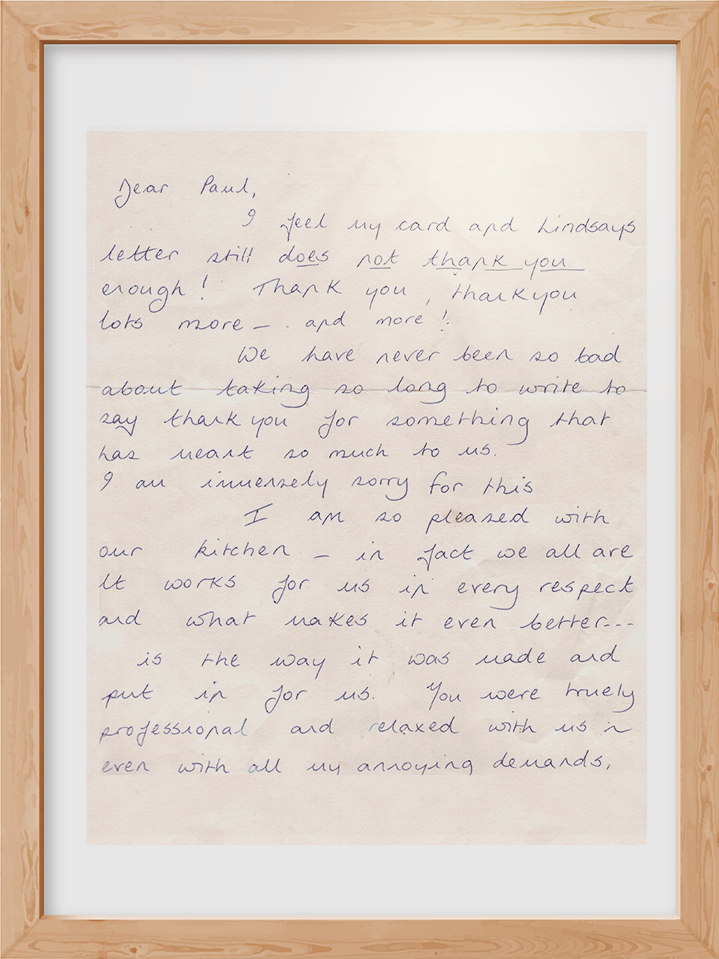 Dear Paul,
I feel my card and Lindsays
letter still does not thank you
enough! Thank you, thankyou
lots more – and more!
We have never been so bad
about taking so long to write to
say thank you for something that
has meant so much to us.
I am immensely sorry for this
I am so pleased with
our kitchen – in fact we all are
It works for us in every respect
and what makes it even better---
is the way it was made and
put in for us. You were truely
professional and relaxed with us ~
even with all my annoying demands,